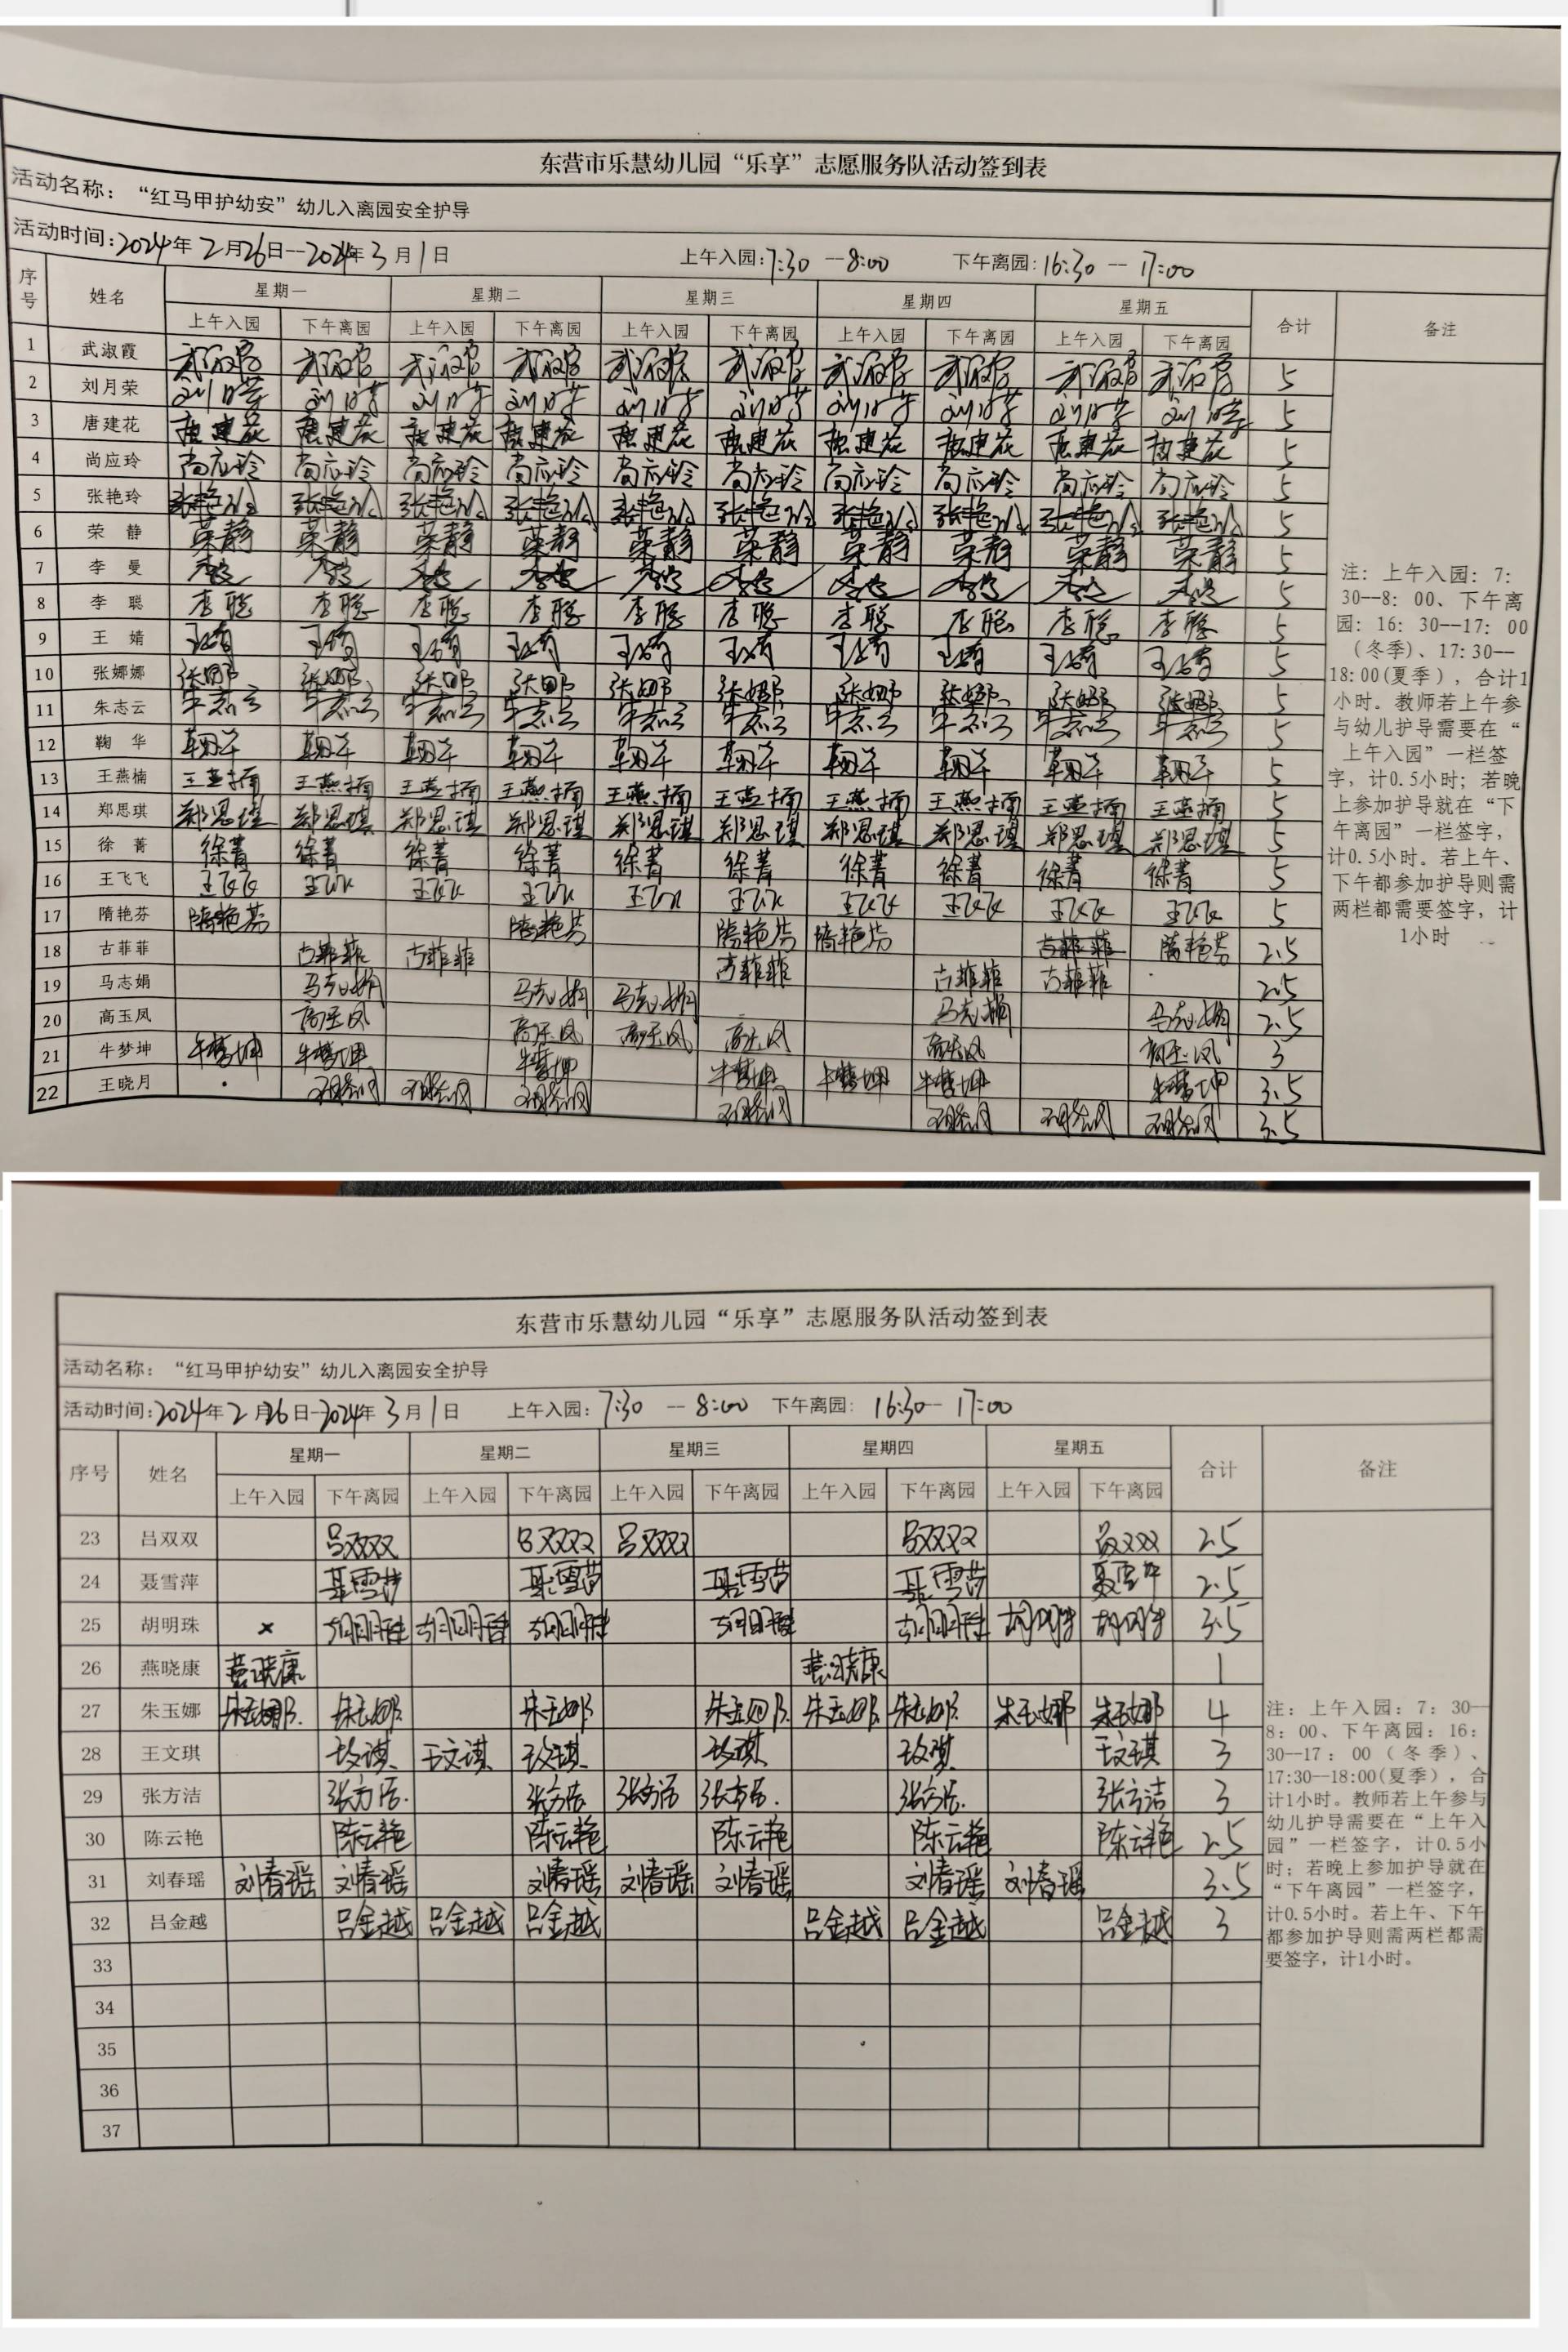 东营市乐慧幼儿园“乐享”志愿服务队活动签到表
活动名称：“红马甲护幼安”幼儿入离园安全护导
活动时间：2024年2月26日--2024年3月1日 上午入园：7:30--8:00 下午离园：16:30--17:00
序号 姓名 星期一 星期二 星期三 星期四 星期五 合计 备注
上午入园 下午离园 上午入园 下午离园 上午入园 下午离园 上午入园 下午离园 上午入园 下午离园
1 武淑霞 武淑霞 武淑霞 武淑霞 武淑霞 武淑霞 武淑霞 武淑霞 武淑霞 武淑霞 武淑霞 5
2 刘月荣 刘月荣 刘月荣 刘月荣 刘月荣 刘月荣 刘月荣 刘月荣 刘月荣 刘月荣 刘月荣 5
3 唐建花 唐建花 唐建花 唐建花 唐建花 唐建花 唐建花 唐建花 唐建花 唐建花 唐建花 5
4 尚应玲 尚应玲 尚应玲 尚应玲 尚应玲 尚应玲 尚应玲 尚应玲 尚应玲 尚应玲 尚应玲 5
5 张艳玲 张艳玲 张艳玲 张艳玲 张艳玲 张艳玲 张艳玲 张艳玲 张艳玲 张艳玲 张艳玲 5
6 荣 静 荣静 荣静 荣静 荣静 荣静 荣静 荣静 荣静 荣静 荣静 5
7 李 曼 李曼 李曼 李曼 李曼 李曼 李曼 李曼 李曼 李曼 李曼 5
8 李 聪 李聪 李聪 李聪 李聪 李聪 李聪 李聪 李聪 李聪 李聪 5
9 王 婧 王婧 王婧 王婧 王婧 王婧 王婧 王婧 王婧 王婧 王婧 5
10 张娜娜 张娜 张娜 张娜 张娜 张娜 张娜 张娜 张娜 张娜 张娜 5
11 朱志云 朱志云 朱志云 朱志云 朱志云 朱志云 朱志云 朱志云 朱志云 朱志云 朱志云 5
12 鞠 华 鞠华 鞠华 鞠华 鞠华 鞠华 鞠华 鞠华 鞠华 鞠华 鞠华 5
13 王燕楠 王燕楠 王燕楠 王燕楠 王燕楠 王燕楠 王燕楠 王燕楠 王燕楠 王燕楠 王燕楠 5
14 郑思琪 郑思琪 郑思琪 郑思琪 郑思琪 郑思琪 郑思琪 郑思琪 郑思琪 郑思琪 郑思琪 5
15 徐 菁 徐菁 徐菁 徐菁 徐菁 徐菁 徐菁 徐菁 徐菁 徐菁 徐菁 5
16 王飞飞 王飞飞 王飞飞 王飞飞 王飞飞 王飞飞 王飞飞 王飞飞 王飞飞 王飞飞 王飞飞 5
17 隋艳芬 隋艳芬 隋艳芬 隋艳芬 隋艳芬 隋艳芬 2.5
18 古菲菲 古菲菲 古菲菲 古菲菲 古菲菲 古菲菲 古菲菲 2.5
19 马志娟 马志娟 马志娟 马志娟 马志娟 马志娟 2.5
20 高玉凤 高玉凤 高玉凤 高玉凤 高玉凤 高玉凤 高玉凤 3
21 牛梦坤 牛梦坤 牛梦坤 牛梦坤 牛梦坤 牛梦坤 牛梦坤 牛梦坤 3.5
22 王晓月 3.5
注：上午入园：7：
30--8：00、下午离
园：16：30--17：00
（冬季）、17:30--
18:00(夏季），合计1
小时。教师若上午参
与幼儿护导需要在“
上午入园”一栏签
字，计0.5小时；若晚
上参加护导就在“下
午离园”一栏签字，
计0.5小时。若上午、
下午都参加护导则需
两栏都需要签字，计
1小时
东营市乐慧幼儿园“乐享”志愿服务队活动签到表
活动名称：“红马甲护幼安”幼儿入离园安全护导
活动时间：2024年2月26日--2024年3月1日 上午入园：7:30--8:00 下午离园：16:30--17:00
序号 姓名 星期一 星期二 星期三 星期四 星期五 合计 备注
上午入园 下午离园 上午入园 下午离园 上午入园 下午离园 上午入园 下午离园 上午入园 下午离园
23 吕双双 吕双双 吕双双 吕双双 吕双双 吕双双 2.5
24 聂雪萍 聂雪萍 聂雪萍 聂雪萍 聂雪萍 聂雪萍 2.5
25 胡明珠 × 胡明珠 胡明珠 胡明珠 胡明珠 胡明珠 胡明珠 胡明珠 3.5
26 燕晓康 燕晓康 燕晓康 1
27 朱玉娜 朱玉娜 朱玉娜 朱玉娜 朱玉娜 朱玉娜 朱玉娜 朱玉娜 朱玉娜 4
28 王文琪 王文琪 王文琪 王文琪 王文琪 王文琪 王文琪 3
29 张方洁 张方洁 张方洁 张方洁 张方洁 张方洁 张方洁 3
30 陈云艳 陈云艳 陈云艳 陈云艳 陈云艳 陈云艳 2.5
31 刘春瑶 刘春瑶 刘春瑶 刘春瑶 刘春瑶 刘春瑶 刘春瑶 刘春瑶 3.5
32 吕金越 吕金越 吕金越 吕金越 吕金越 吕金越 吕金越 3
33
34
35
36
37
注：上午入园：7：30--
8：00、下午离园：16：
30--17：00（冬季）、
17:30--18:00(夏季），合
计1小时。教师若上午参与
幼儿护导需要在“上午入
园”一栏签字，计0.5小
时；若晚上参加护导就在
“下午离园”一栏签字，
计0.5小时。若上午、下午
都参加护导则需两栏都需
要签字，计1小时。